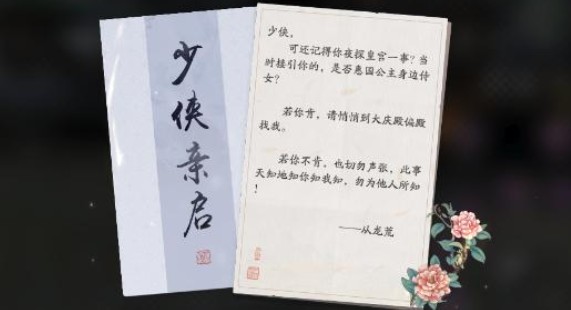 少侠亲启
少侠，
可还记得你夜探皇宫一事？当
时接引你的，是否惠国公主身边侍
女？
若你肯，请悄悄到大庆殿偏殿
找我。
若你不肯，也切勿声张，此事
天知地知你知我知，勿为他人所知
！
——从龙荒